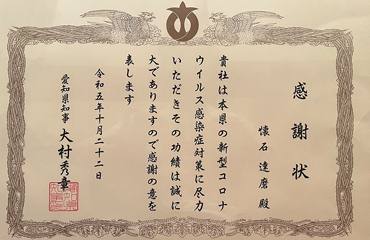 感謝状
懐石 達磨 殿
貴社は本県の新型コロナ
ウイルス感染症対策に尽力
いただきその功績は誠に
大でありますので感謝の意を
表します
令和五年十月二十二日
愛知県知事 大村秀章